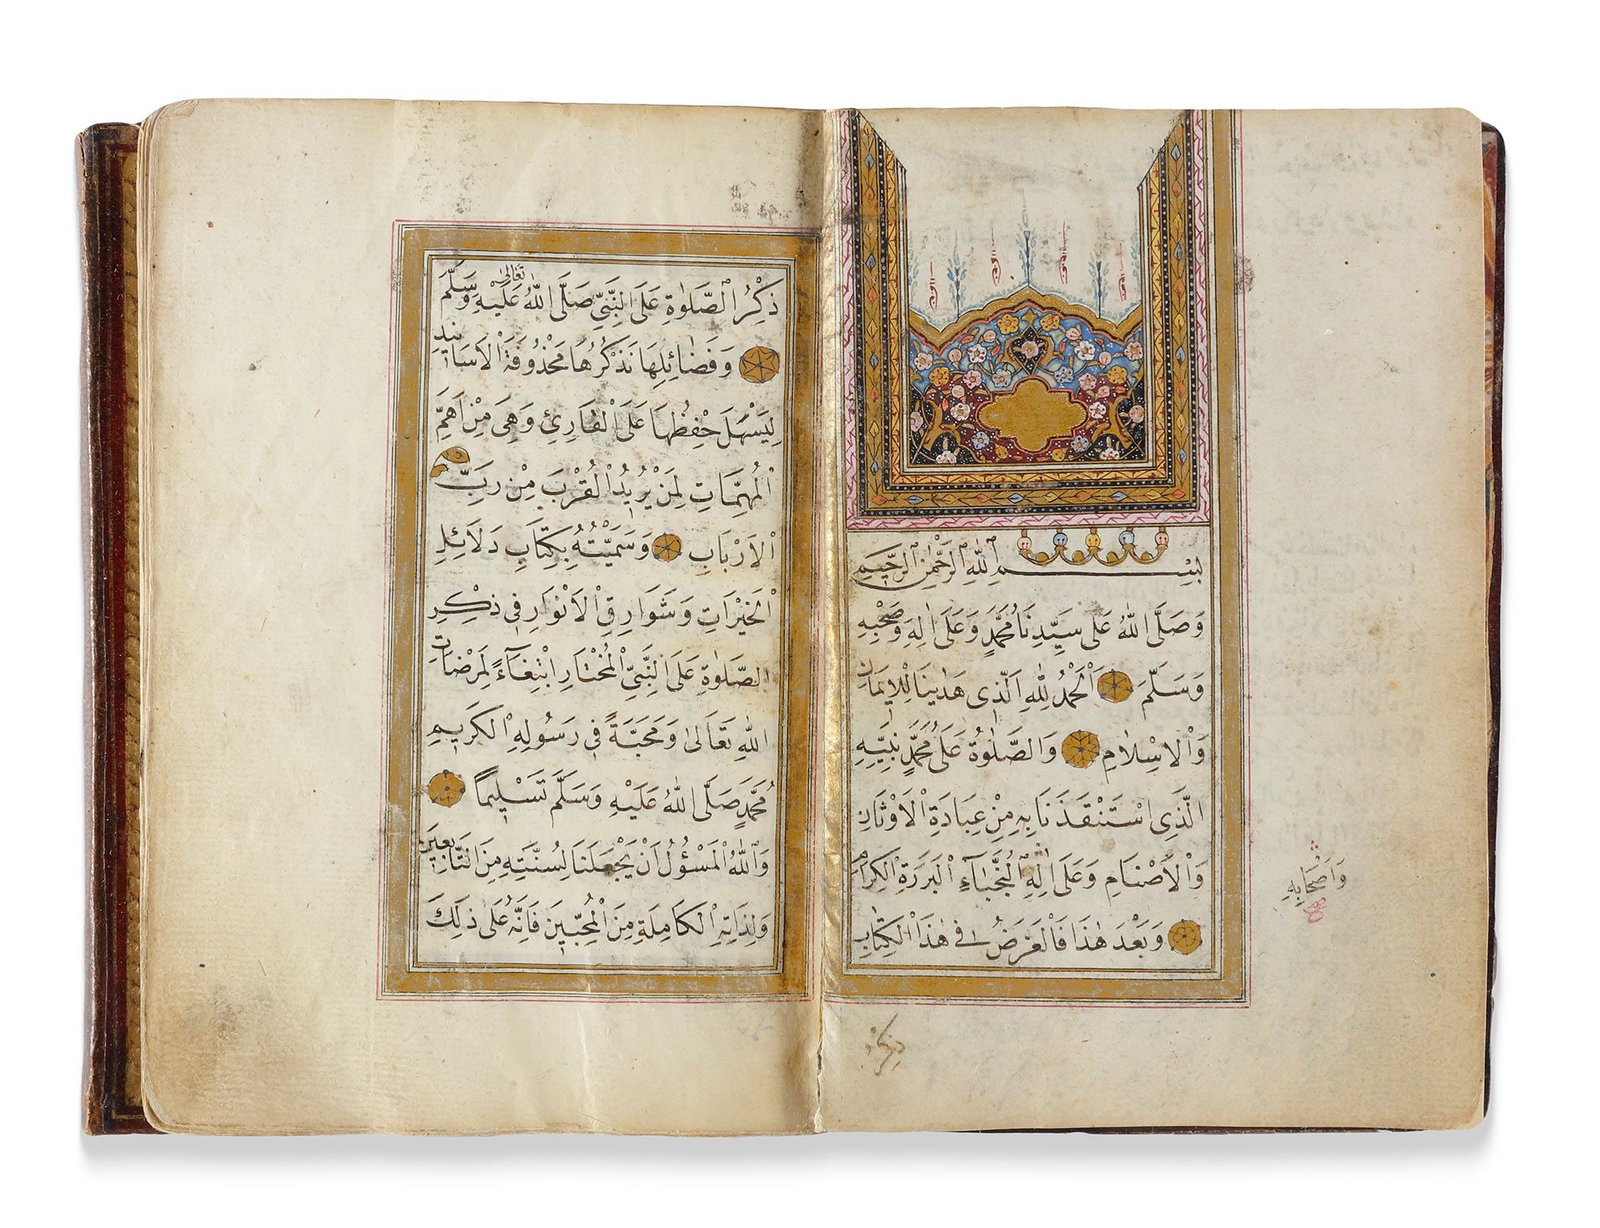 بِسْمِ اللّٰهِ الرَّحْمٰنِ الرَّحِيمِ
وَصَلَّى اللّٰهُ عَلٰى سَيِّدِنَا مُحَمَّدٍ وَعَلٰى اٰلِهِ وَصَحْبِهِ
وَسَلَّمَ اَلْحَمْدُ لِلّٰهِ الَّذِى هَدٰينَا لِلْاِيمَانِ
وَالْاِسْلَامِ وَالصَّلٰوةُ عَلٰى مُحَمَّدٍ نَبِيِّهِ
الَّذِى اسْتَنْقَذَنَا بِهِ مِنْ عِبَادَةِ الْاَوْثَانِ
وَالْاَصْنَامِ وَعَلٰى اٰلِهِ النُّجَبَاءِ الْبَرَرَةِ الْكِرَامِ
وَاَصْحَابِهِ
وَبَعْدَ هٰذَا فَالْغَرَضُ فِى هٰذَا الْكِتَابِ
ذِكْرُ
ذِكْرُ الصَّلٰوةِ عَلَى النَّبِيِّ صَلَّى اللّٰهُ تَعَالٰى عَلَيْهِ وَسَلَّمَ
وَفَضَائِلِهَا نَذْكُرُهَا مَحْذُوفَةَ الْاَسَانِيدِ
لِيَسْهُلَ حِفْظُهَا عَلَى الْقَارِئِ وَهِىَ مِنْ اَهَمِّ
الْمُهِمَّاتِ لِمَنْ يُرِيدُ الْقُرْبَ مِنْ رَبِّ
الْاَرْبَابِ وَسَمَّيْتُهُ بِكِتَابِ دَلَائِلِ
الْخَيْرَاتِ وَشَوَارِقِ الْاَنْوَارِ فِى ذِكْرِ
الصَّلٰوةِ عَلَى النَّبِيِّ الْمُخْتَارِ ابْتِغَآءً لِمَرْضَاتِ
اللّٰهِ تَعَالٰى وَمَحَبَّةً فِى رَسُولِهِ الْكَرِيمِ
مُحَمَّدٍ صَلَّى اللّٰهُ عَلَيْهِ وَسَلَّمَ تَسْلِيمًا
وَاللّٰهُ الْمَسْؤُلُ اَنْ يَجْعَلَنَا لِسُنَّتِهِ مِنَ التَّابِعِينَ
وَلِذَاتِهِ الْكَامِلَةِ مِنَ الْمُحِبِّينَ فَاِنَّهُ عَلٰى ذٰلِكَ